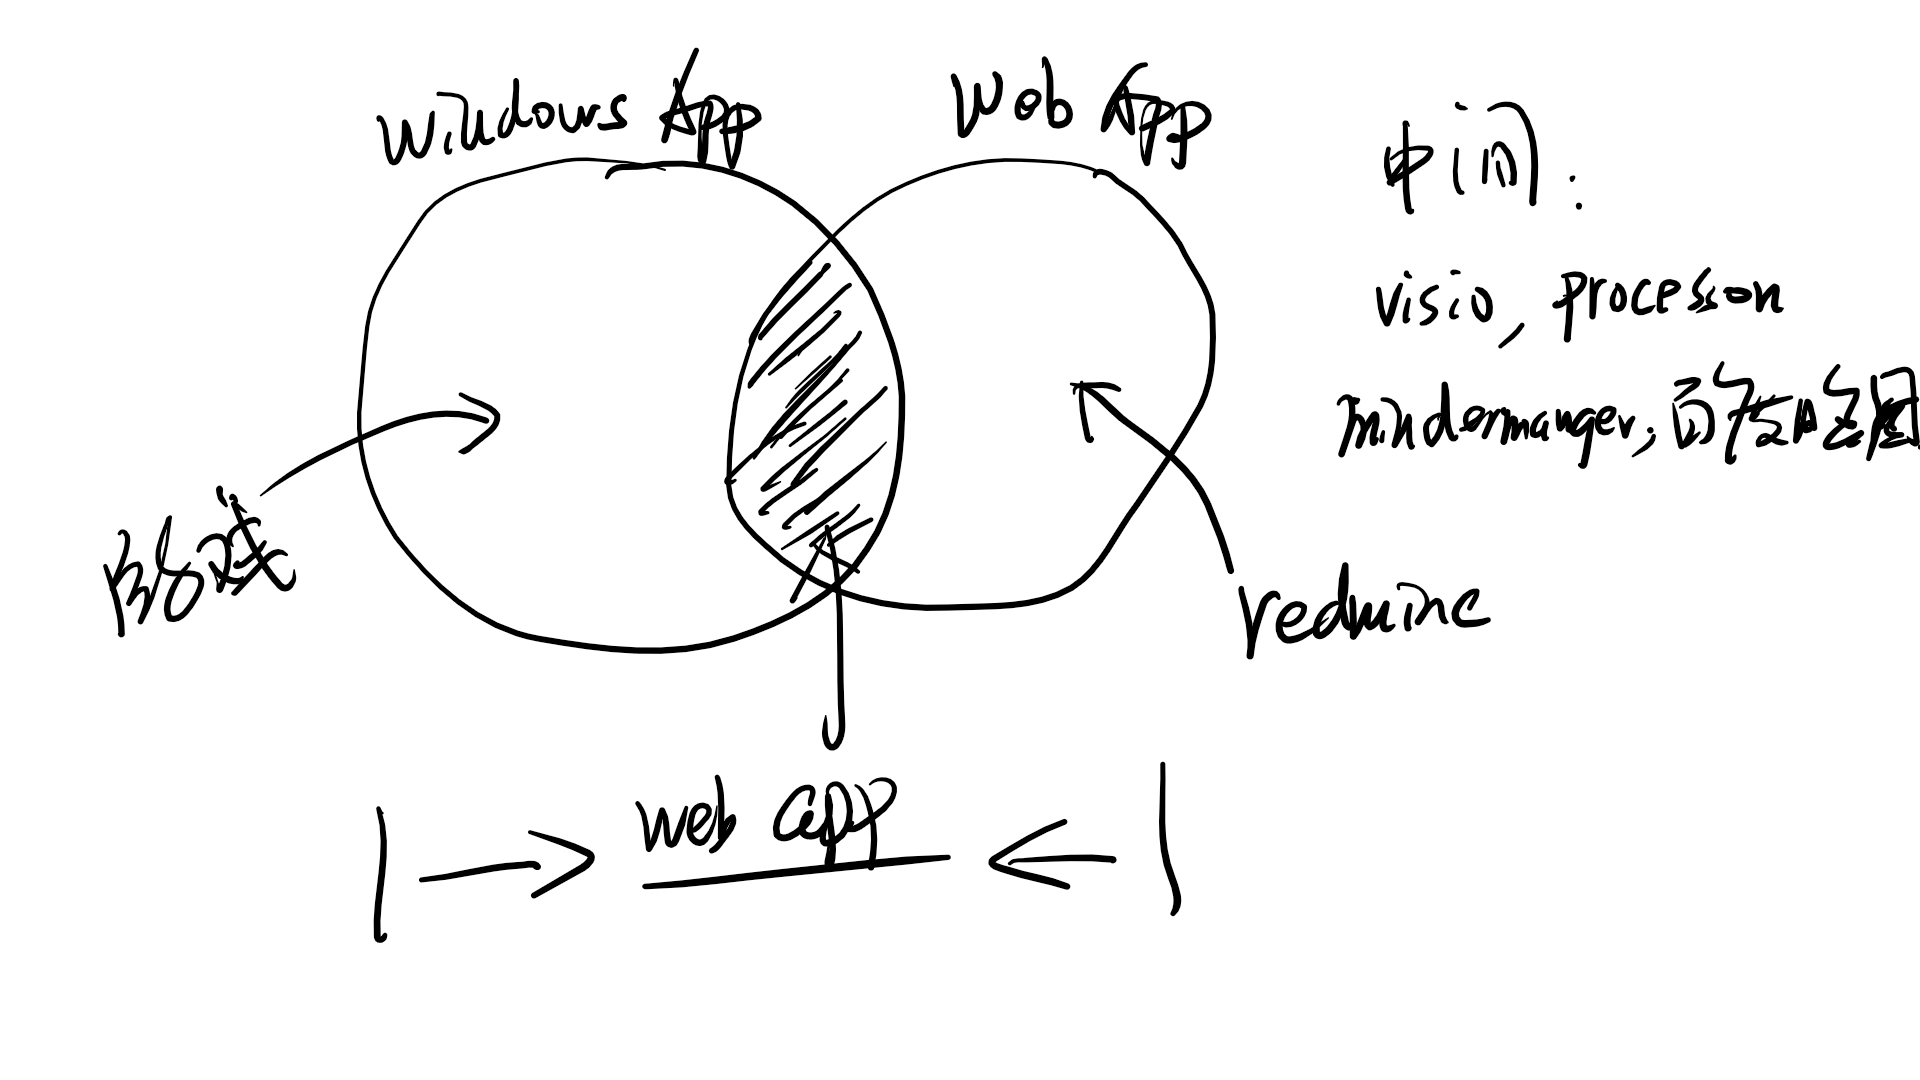 Windows App
Web App
中间:
visio, processon
mindermanger, 百度脑图
redmine
web app